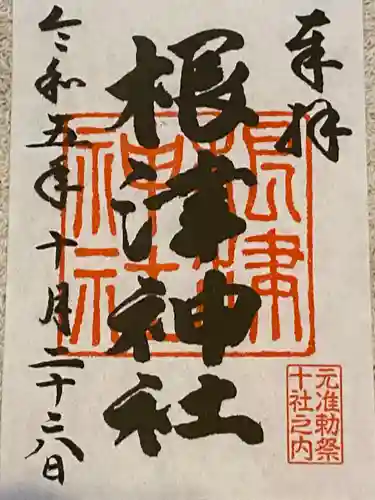 奉拝
根津神社
根津
神社
元准勅祭
十社之内
令和五年十月二十八日